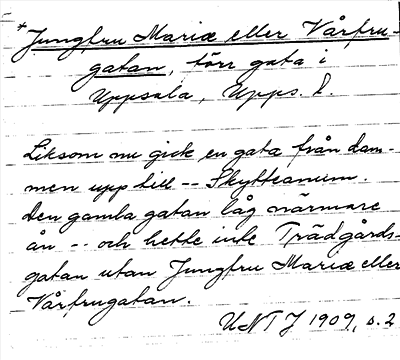 *Jungfru Mariæ eller Vårfru-
gatan, förr gata i
Uppsala, Upps. l.
Liksom nu gick en gata från dam-
men upp till -- Skytteanum.
Den gamla gatan låg närmare
ån -- och hette inte Trädgårds-
gatan utan Jungfru Mariæ eller
Vårfrugatan.
UNT J 1909, s. 2